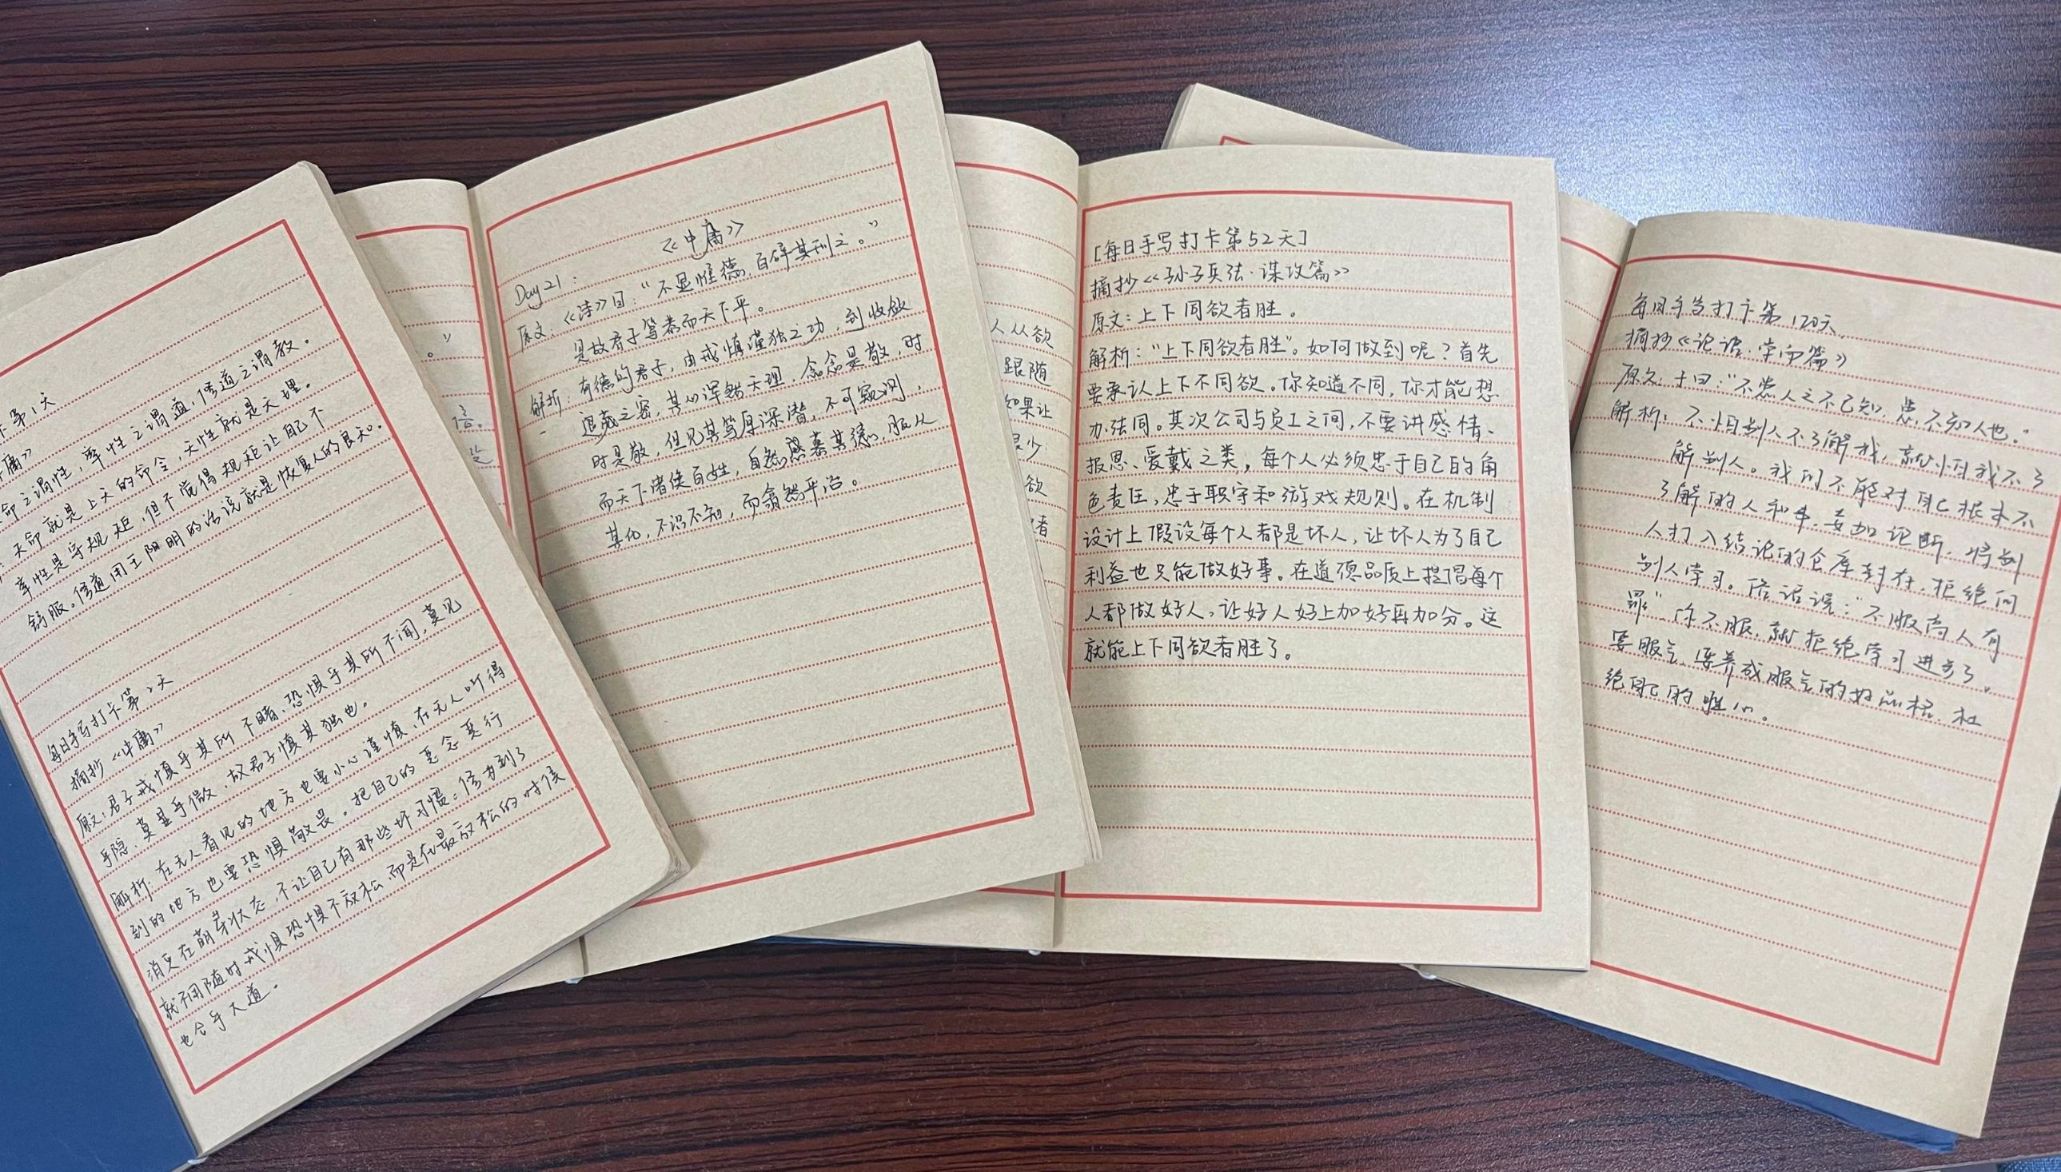 卡第1天
庸》
命之谓性，率性之谓道，修道之谓教。
天命就是上天的命令，天性就是天理。
率性是守规矩，但不觉得规矩让自己不
舒服。修道用王阳明的话说就是恢复人的良知。
每日手写打卡第2天
摘抄《中庸》
原文：君子戒慎乎其所不睹，恐惧乎其所不闻，莫见
乎隐，莫显乎微，故君子慎其独也。
解析：在无人看见的地方也要小心谨慎，在无人听得
到的地方也要恐惧敬畏。把自己的恶念恶行
消灭在萌芽状态，不让自己有那些坏习惯。修为到了
就不用随时戒惧恐惧不放松而是在最放松的时候
也合乎大道。
。”
《中庸》
Day21：
原文：《诗》曰：“不显惟德，百辟其刑之。”
是故君子笃恭而天下平。
解析：有德的君子，由戒慎谨独之功，到收敛
退藏之密，其心浑然天理，念念是敬，时
时是敬，但见其笃厚深潜，不可窥测，
而天下诸侯百姓，自然感慕其德，服从
其化，不识不知，而翕然平治。
人从欲
跟随
如果让
很少
欲
者
[每日手写打卡第52天]
摘抄《孙子兵法·谋攻篇》
原文：上下同欲者胜。
解析：“上下同欲者胜”。如何做到呢？首先
要承认上下不同欲。你知道不同，你才能想
办法同。其次公司与员工之间，不要讲感情、
报恩、爱戴之类，每个人必须忠于自己的角
色责任，忠于职守和游戏规则。在机制
设计上假设每个人都是坏人，让坏人为了自己
利益也只能做好事。在道德品质上提倡每个
人都做好人，让好人好上加好再加分。这
就能上下同欲者胜了。
每日手写打卡第120天
摘抄《论语·学而篇》
原文：子曰：“不患人之不己知，患不知人也。”
解析：不怕别人不了解我，就怕我不了
解别人。我们不能对自己根本不
了解的人和事，妄加论断，将别
人打入结论的仓库封存，拒绝向
别人学习。俗话说：“不服高人有
罪”你不服，就拒绝学习进步了。
要服气，培养成服气的好品格，杜
绝自己的胜心。